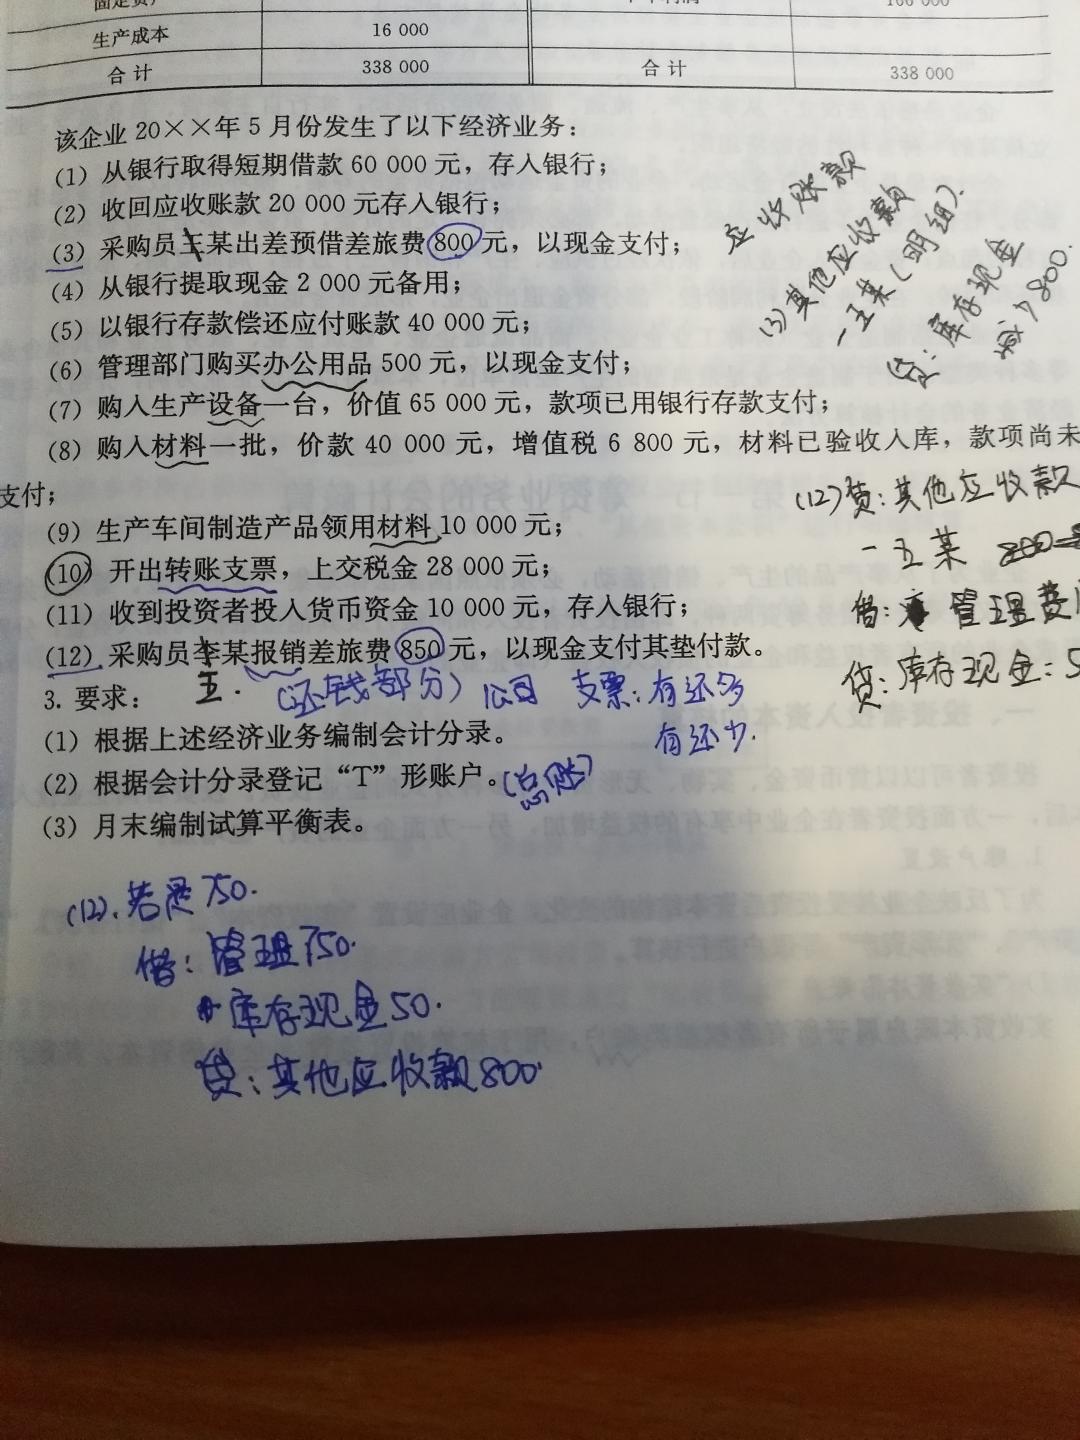 生产成本 16 000
合计 338 000 合计 338 000
该企业 20××年 5 月份发生了以下经济业务：
(1) 从银行取得短期借款 60 000 元，存入银行；
(2) 收回应收账款 20 000 元存入银行；
(3) 采购员王某出差预借差旅费 800 元，以现金支付；
(4) 从银行提取现金 2 000 元备用；
(5) 以银行存款偿还应付账款 40 000 元；
(6) 管理部门购买办公用品 500 元，以现金支付；
(7) 购入生产设备一台，价值 65 000 元，款项已用银行存款支付；
(8) 购入材料一批，价款 40 000 元，增值税 6 800 元，材料已验收入库，款项尚未
支付；
(9) 生产车间制造产品领用材料 10 000 元；
(10) 开出转账支票，上交税金 28 000 元；
(11) 收到投资者投入货币资金 10 000 元，存入银行；
(12) 采购员李某报销差旅费 850 元，以现金支付其垫付款。
王.
(还钱部分) 公司 支票：有还多
有还少.
3. 要求：
(1) 根据上述经济业务编制会计分录。
(2) 根据会计分录登记“T”形账户。(总账)
(3) 月末编制试算平衡表。
应收账款
(3)其他应收款
一王某(明细).
贷：库存现金
800.
(12)贷：其他应收款
一王某
借：管理费
贷：库存现金：5
(12).若是750.
借：管理750.
库存现金50.
贷：其他应收款800.